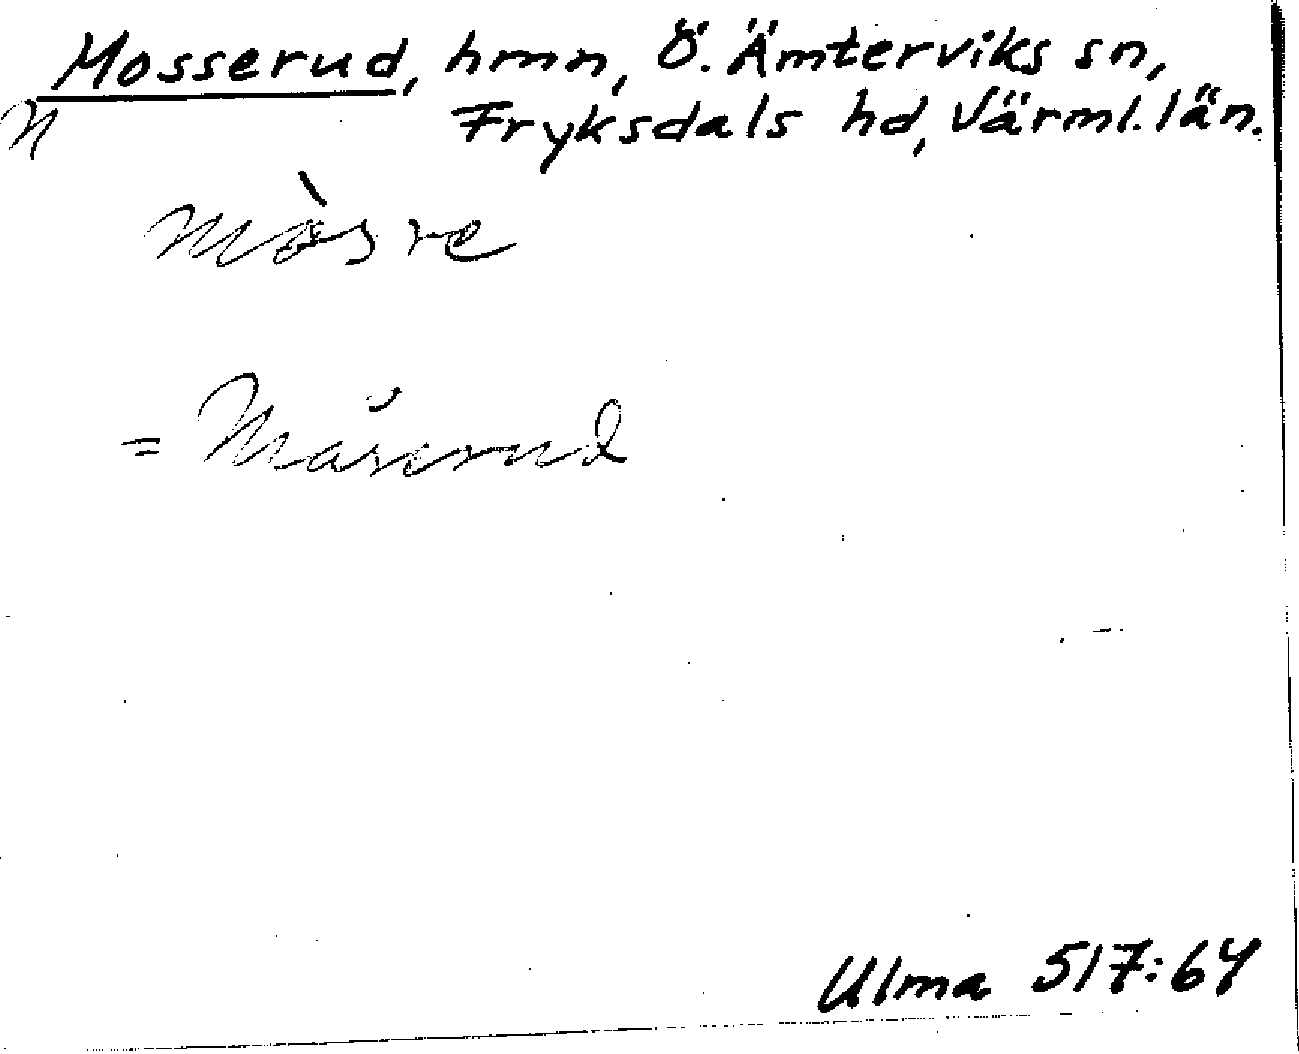 Mosserud, hmn, Ö. Ämterviks sn,
Fryksdals hd, Värml. län.
n
mòsre
= Måserud
Ulma 517:64